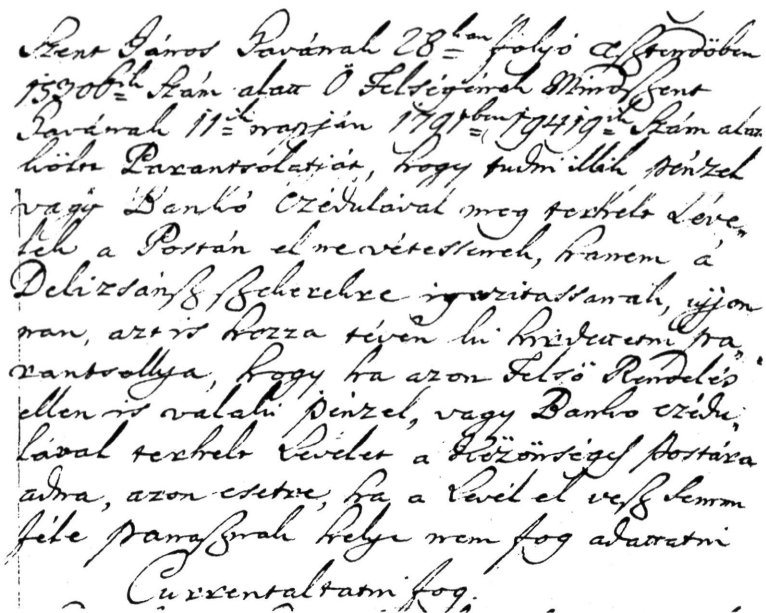 Szent János Havának 28=kan folyó esztendöben
15306=ik Szám alatt Ő Felségének Mindszent
Havának 11=ik napján 1791=ben 19419=ik Szám alatt
költt Parantsolatját, hogy tudni illik pénzel
vagy Bankó Czédulával meg terhelt Leve„
lek a Postán el ne vétessenek, hanem á
Delizsánsz szekerekre igazitassanak, ujjon
nan, azt is hozza tévén ki hirdettetni pa„
rantsollya, hogy ha azon Felső Rendelés
ellen is valaki pénzel, vagy Banko czédu„
lával terhelt Levelet a Közönséges Postára
adna, azon esetre, ha a Levél el vesz semmi
féle panasznak helye nem fog adattatni
Currentaltatni fog.